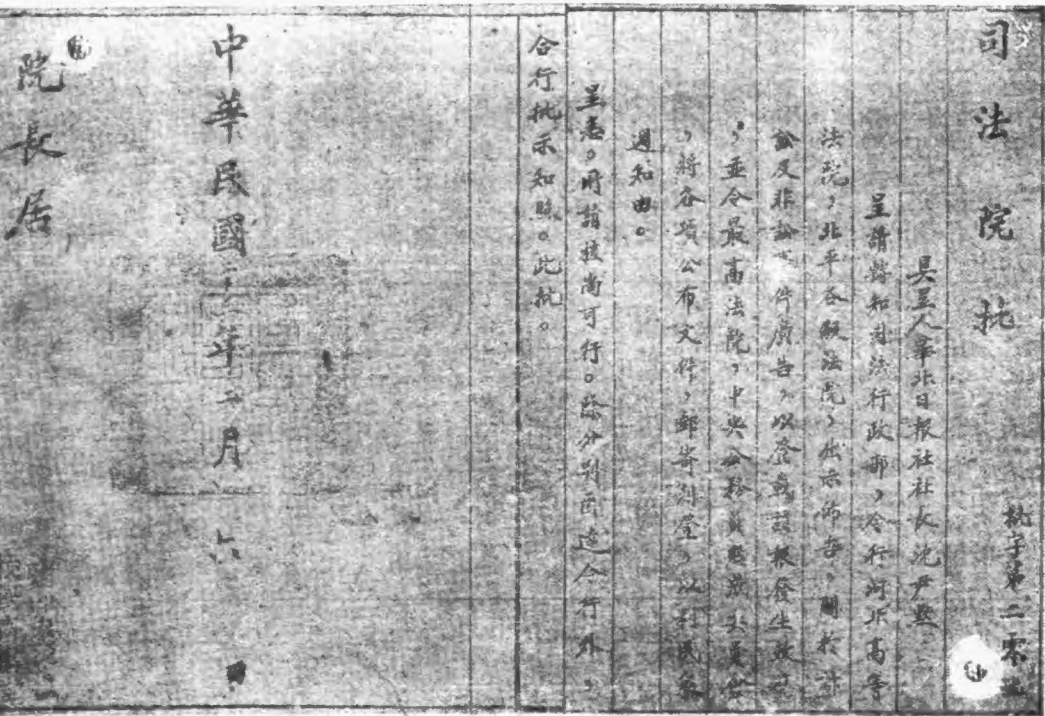 司法院批
批字第二零
具呈人華北日報社社長沈尹默
呈請轉知司法行政部，令行河北高等
法院，北平各級法院，出示佈告，關於訴
訟及非訟事件廣告，以登載該報發生效力
，並令最高法院，中央公務員懲戒委員會
，將各項公布文件，郵寄刊登，以利民衆
週知由。
呈悉。所請核尚可行。除分別函達令行外，
合行批示知照。此批。
中華民國二十年二月六
院長居